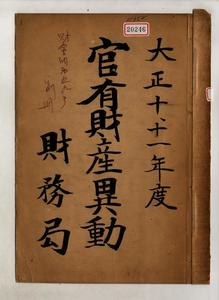 20246
大正十、十一年度
官有財産異動
財務局